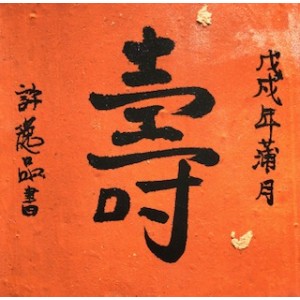 戊戌年蒲月
壽
許德品書